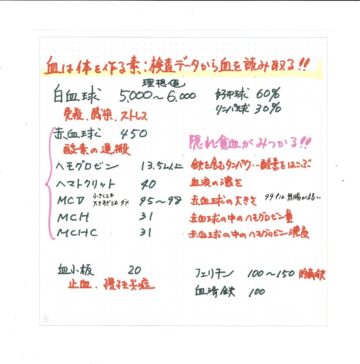 血は体を作る素:検査データから血を読み取る!!
理想値
白血球 5,000〜6,000 好中球 60%
リンパ球 30%
免疫、感染、ストレス
赤血球 450
酸素の運搬
隠れ貧血がみつかる!!
ヘモグロビン 13.5以上 鉄を含むタンパク‥酸素をはこぶ
ヘマトクリット 40 血液の濃さ
MCD 小さくても大きすぎてもダメ 95〜98 赤血球の大きさ
MCH 31 赤血球の中のヘモグロビン量
MCHC 31 赤血球の中のヘモグロビン濃度
血小板 20 フェリチン 100〜150 貯蔵鉄
止血、慢性炎症
血清鉄 100